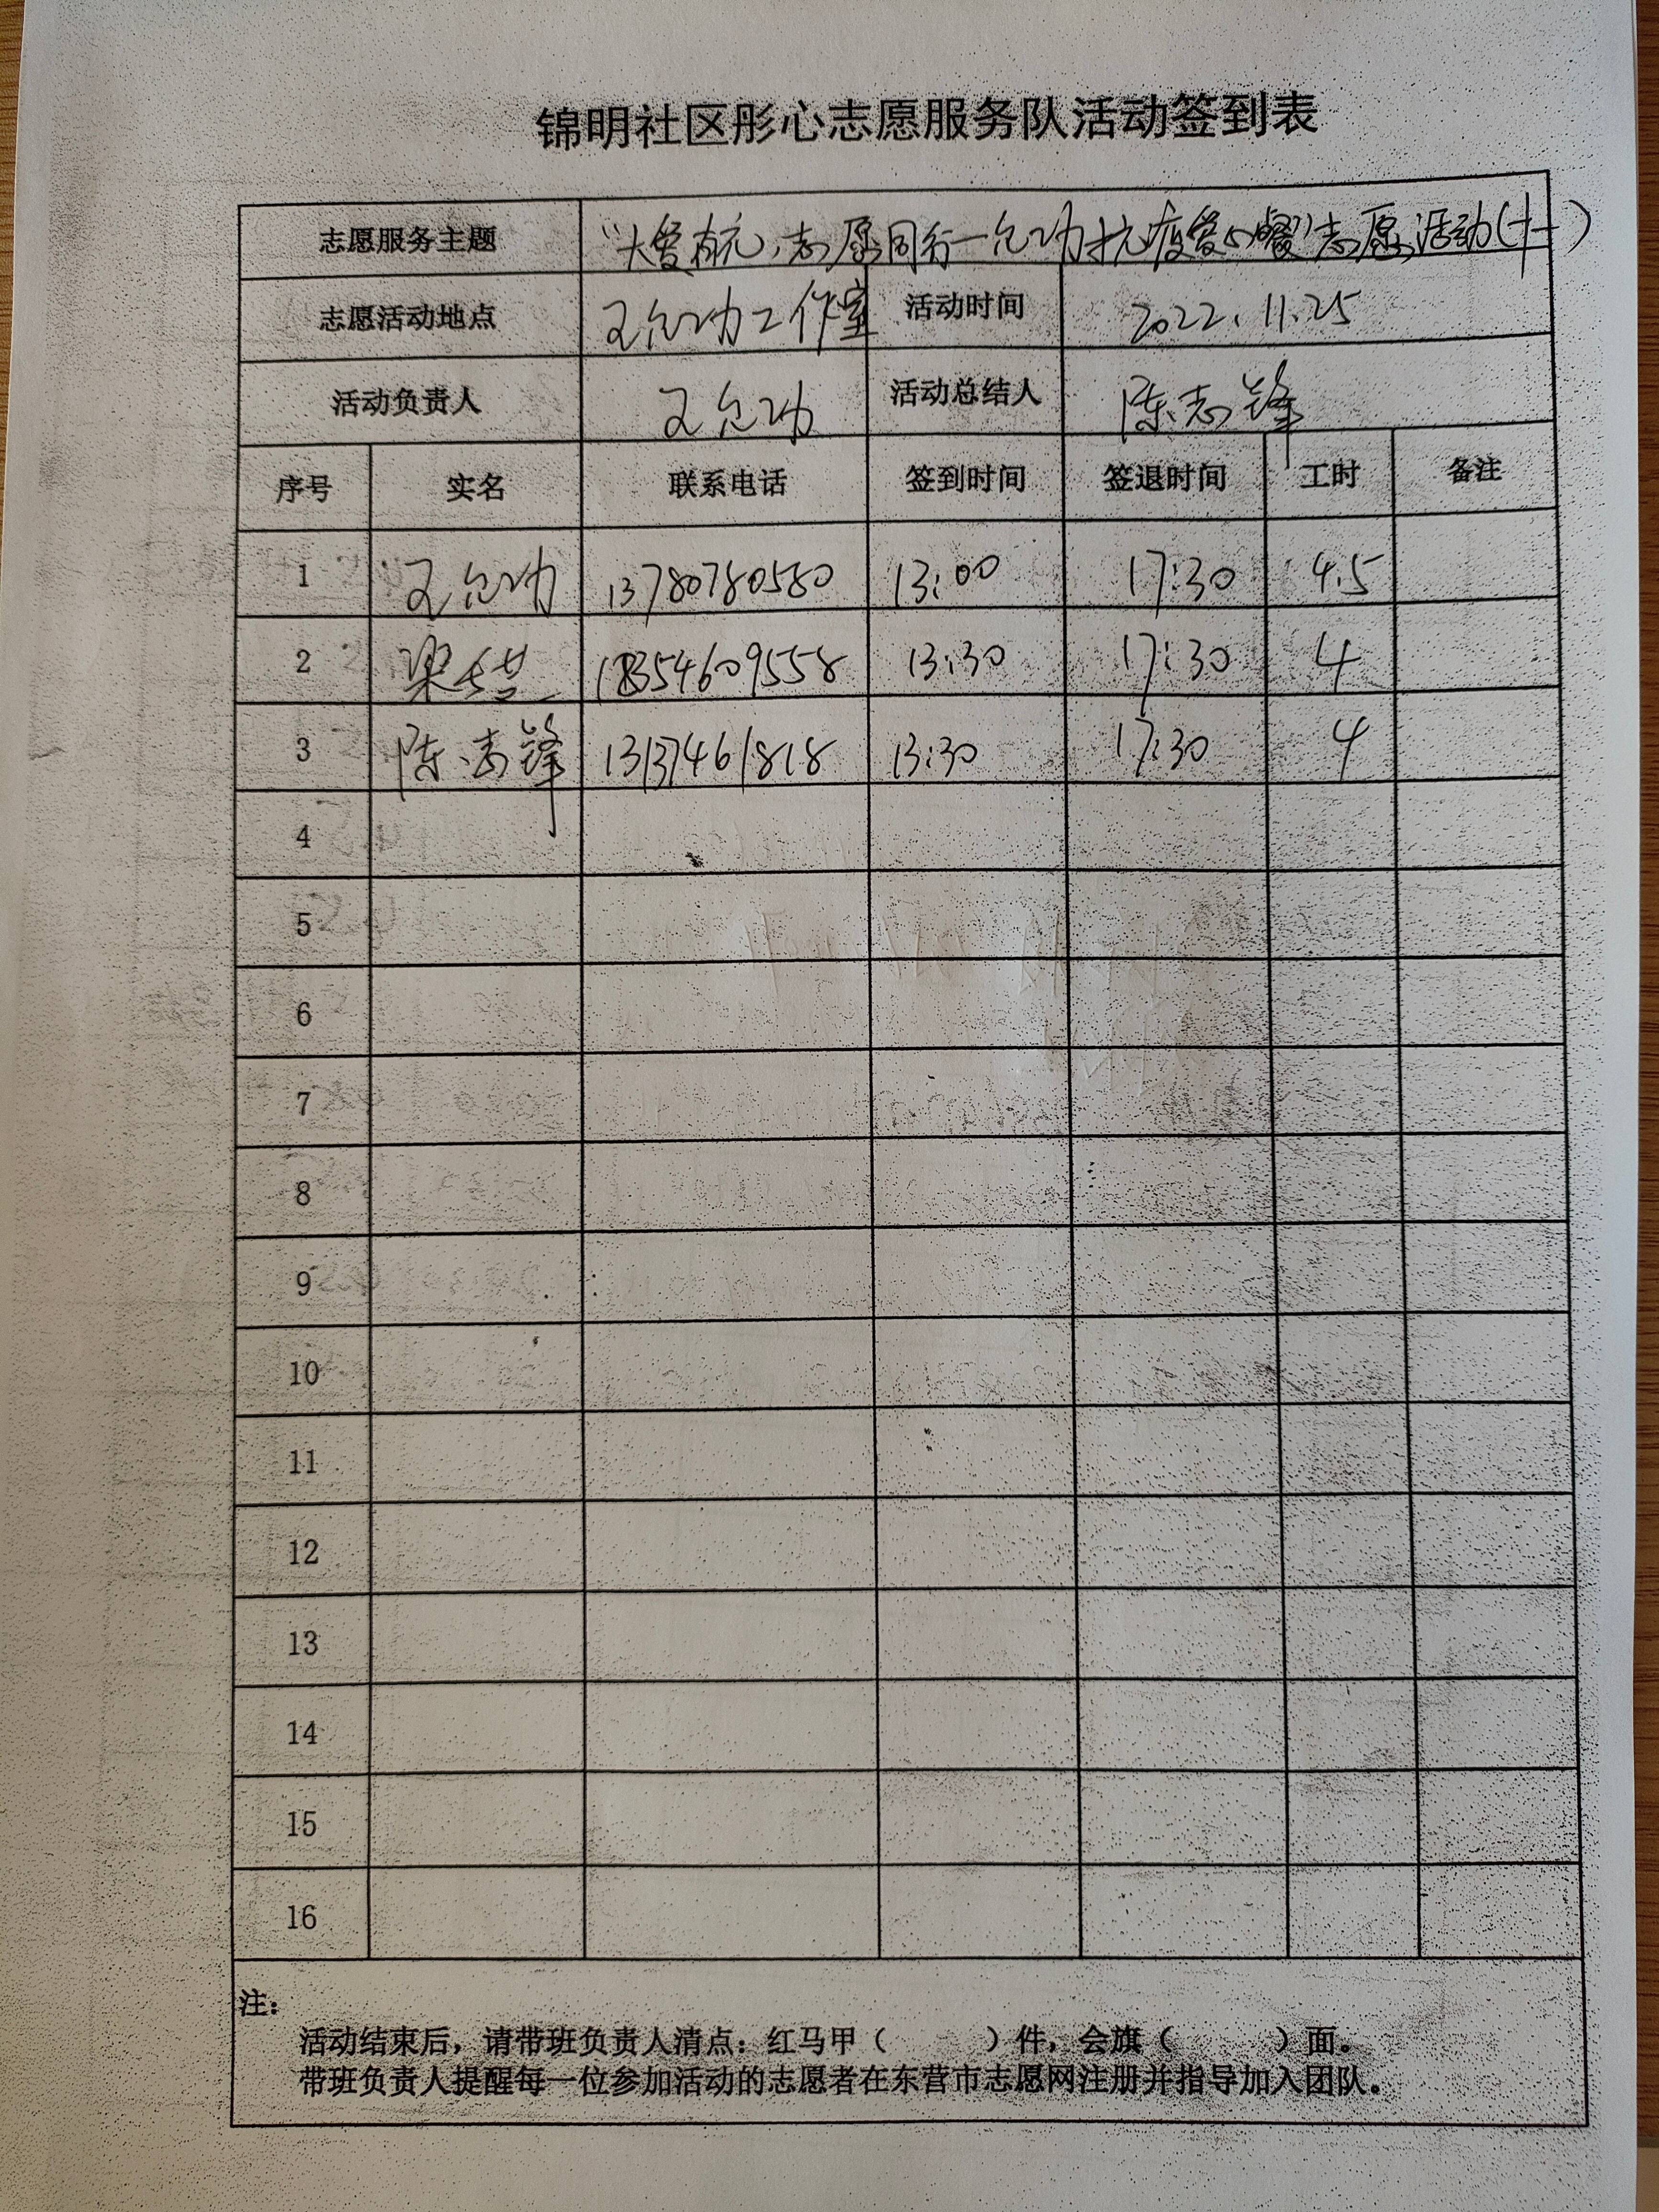 锦明社区彤心志愿服务队活动签到表
志愿服务主题 “大爱东元,志愿同行—允功抗疫爱心餐”志愿活动(十一)
志愿活动地点 王允功工作室 活动时间 2022.11.25
活动负责人 王允功 活动总结人 陈志锋
序号 实名 联系电话 签到时间 签退时间 工时 备注
1 王允功 13780780580 13:00 17:30 4.5
2 梁 18354609558 13:30 17:30 4
3 陈志锋 13137461818 13:30 17:30 4
4
5
6
7
8
9
10
11
12
13
14
15
16
注:
活动结束后,请带班负责人清点:红马甲( )件,会旗( )面。
带班负责人提醒每一位参加活动的志愿者在东营市志愿网注册并指导加入团队。